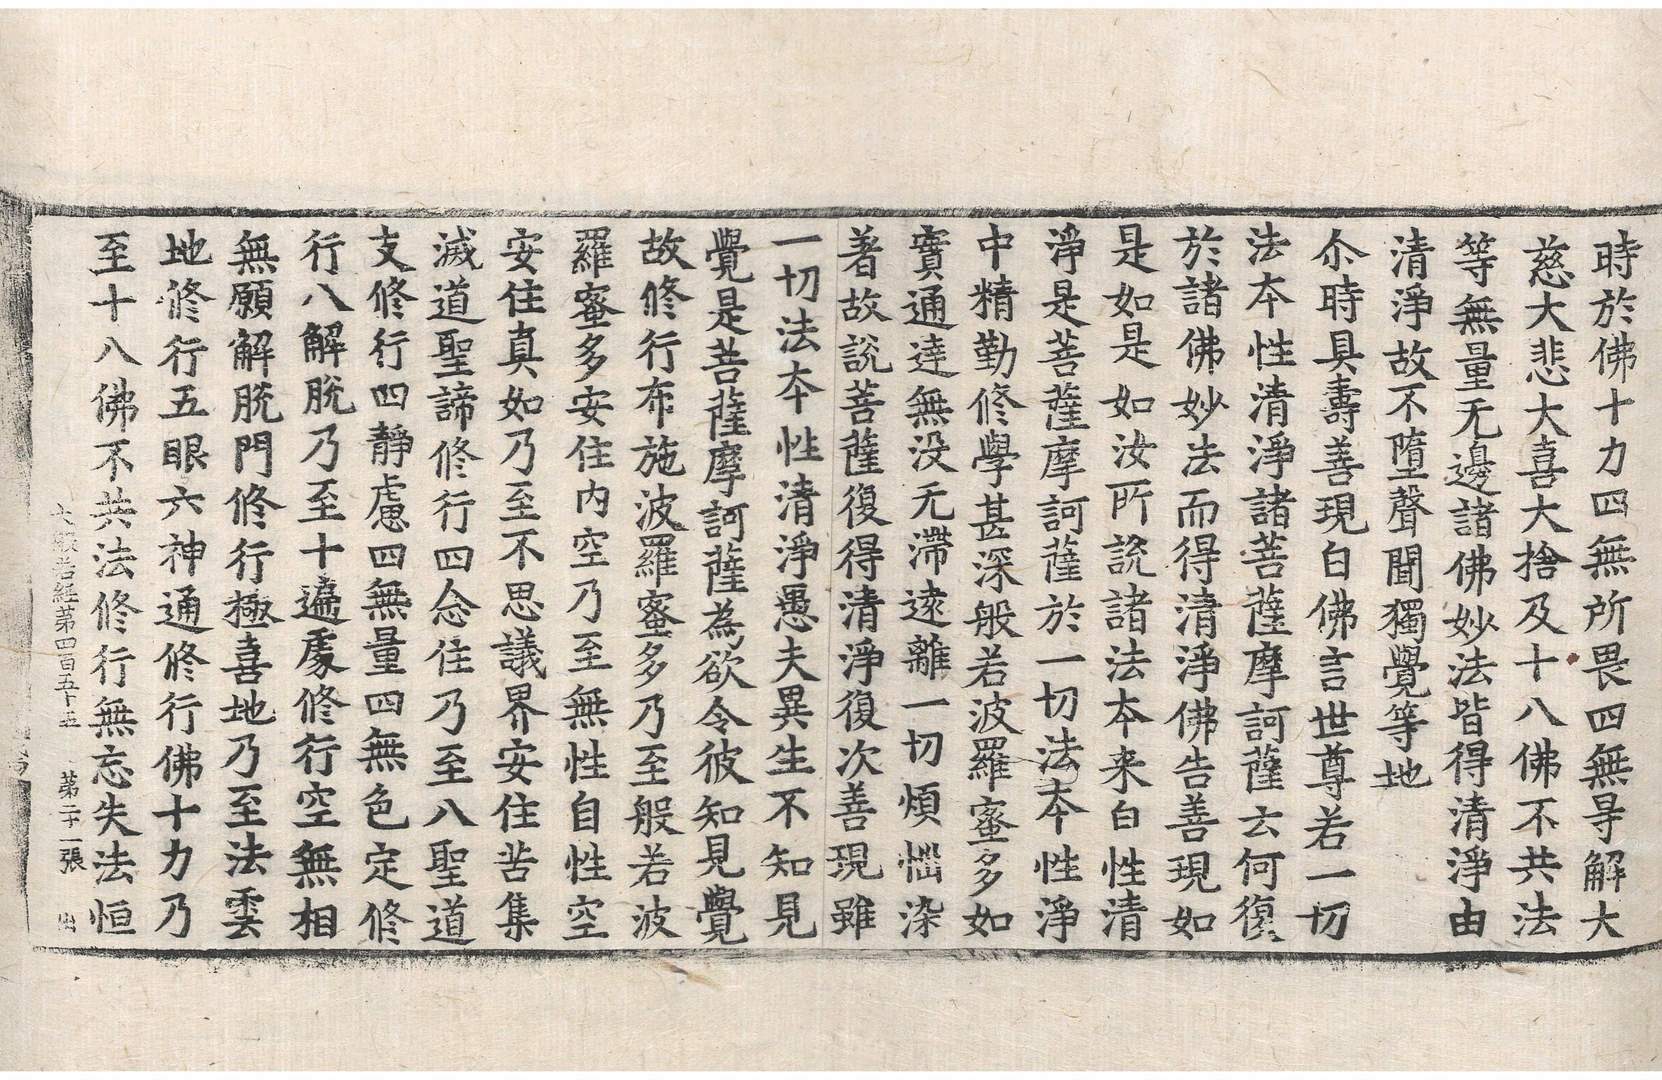 時於佛十力四無所畏四無㝵解大
慈大悲大喜大捨及十八佛不共法
等無量无邊諸佛妙法皆得清淨由
清淨故不墮聲聞獨覺等地
尒時具壽善現白佛言世尊若一切
法本性清淨諸菩薩摩訶薩云何復
於諸佛妙法而得清淨佛告善現如
是如是如汝所說諸法本来自性清
淨是菩薩摩訶薩於一切法本性淨
中精勤修學甚深般若波羅蜜多如
實通達無没无滯遠離一切煩惱染
著故說菩薩復得清淨復次善現雖
一切法本性清淨愚夫異生不知見
覺是菩薩摩訶薩為欲令彼知見覺
故修行布施波羅蜜多乃至般若波
羅蜜多安住内空乃至無性自性空
安住真如乃至不思議界安住苦集
滅道聖諦修行四念住乃至八聖道
支修行四靜慮四無量四無色定修
行八解脫乃至十遍處修行空無相
無願解脫門修行極喜地乃至法雲
地修行五眼六神通修行佛十力乃
至十八佛不共法修行無忘失法恒
大般若經第四百五十五 第二十一張